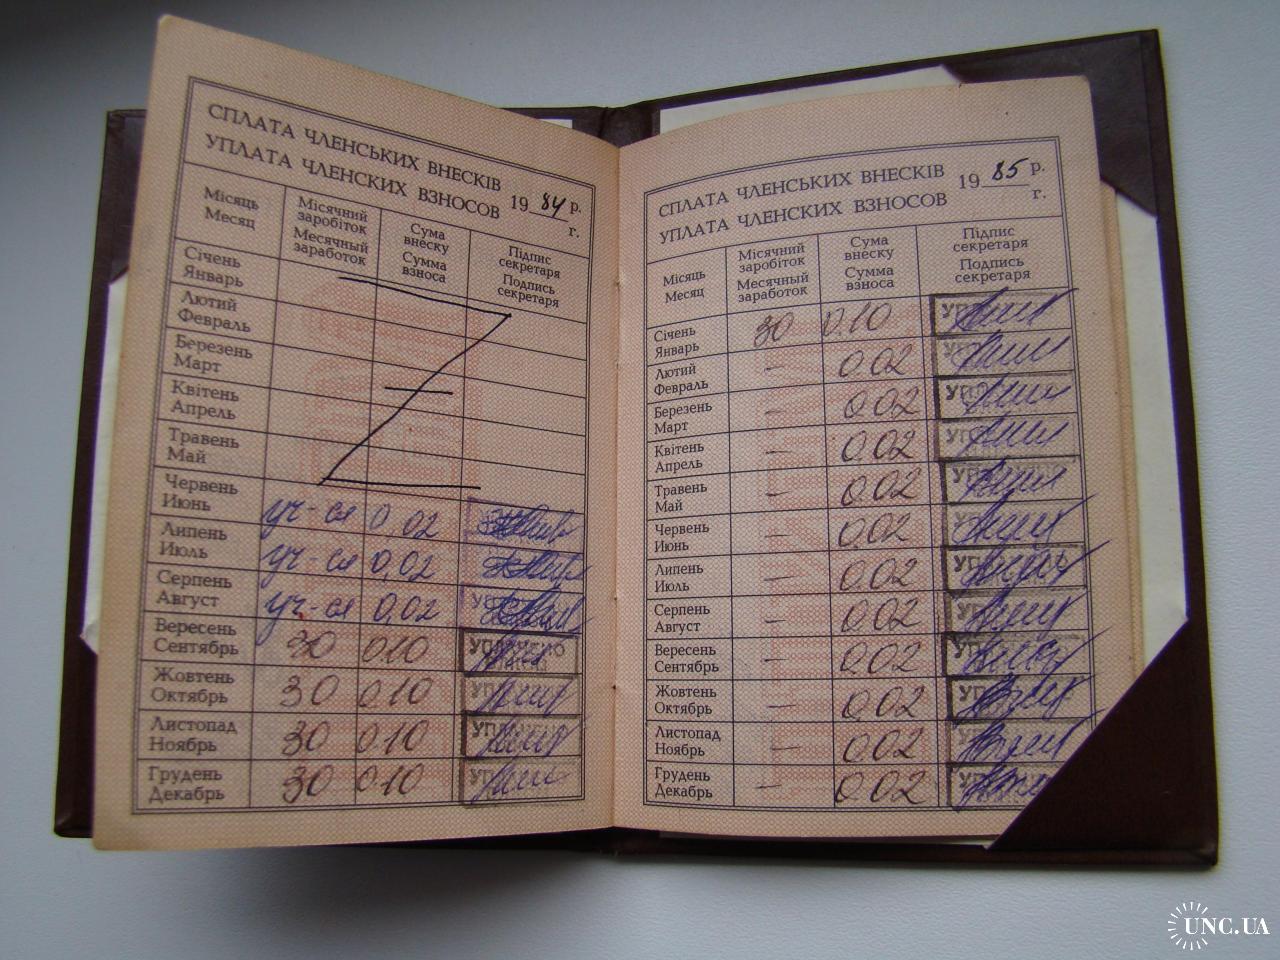 СПЛАТА ЧЛЕНСЬКИХ ВНЕСКІВ
УПЛАТА ЧЛЕНСКИХ ВЗНОСОВ
1984 р.
г.
Місяць
Месяц
Місячний
заробіток
Месячный
заработок
Сума
внеску
Сумма
взноса
Підпис
секретаря
Подпись
секретаря
Січень
Январь
Лютий
Февраль
Березень
Март
Квітень
Апрель
Травень
Май
Червень
Июнь уч-ся 0,02
Липень
Июль уч-ся 0,02
Серпень
Август уч-ся 0,02
Вересень
Сентябрь 30 0.10 УПЛАЧЕНО
Жовтень
Октябрь 30 0.10
Листопад
Ноябрь 30 0.10
Грудень
Декабрь 30 0.10
СПЛАТА ЧЛЕНСЬКИХ ВНЕСКІВ
УПЛАТА ЧЛЕНСКИХ ВЗНОСОВ
1985 р.
г.
Місяць
Месяц
Місячний
заробіток
Месячный
заработок
Сума
внеску
Сумма
взноса
Підпис
секретаря
Подпись
секретаря
Січень
Январь 30 0.10
Лютий
Февраль - 0.02
Березень
Март - 0.02
Квітень
Апрель - 0.02
Травень
Май - 0.02
Червень
Июнь - 0.02
Липень
Июль - 0.02
Серпень
Август - 0.02
Вересень
Сентябрь - 0.02
Жовтень
Октябрь - 0.02
Листопад
Ноябрь - 0.02
Грудень
Декабрь - 0.02
UNC.UA